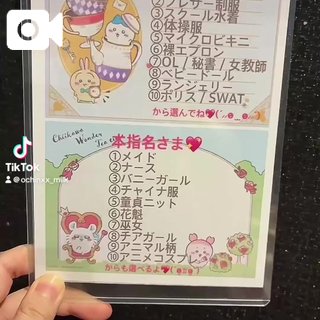 ②ブレザー制服
③スクール水着
④体操服
⑤マイクロビキニ
⑥裸エプロン
⑦OL / 秘書 / 女教師
⑧ベビードール
⑨ランジェリー
⑩ポリス / SWAT
から選んでね
TikTok
@ochinxx_milk
Chiikawa Wonder Tea
本指名さま
①メイド
②ナース
③バニーガール
④チャイナ服
⑤童貞ニット
⑥花魁
⑦巫女
⑧チアガール
⑨アニマル柄
⑩アニメコスプレ
からも選べるよ